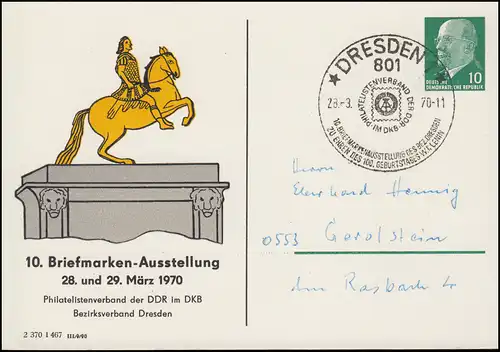 10. Briefmarken-Ausstellung
28. und 29. März 1970
Philatelistenverband der DDR im DKB
Bezirksverband Dresden
2 370 1 467 III/9/05
★ DRESDEN
801
PHILATELISTENVERBAND DER DDR
IM DKB
28.-3. 70-11
10. BRIEFMARKENAUSSTELLUNG DES BEZ. DRESDEN
ZU EHREN DES 100. GEBURTSTAGES W.I. LENIN
10
DEUTSCHE
DEMOKRATISCHE REPUBLIK
Herrn
Eberhard Hennig
0553 Gerolstein